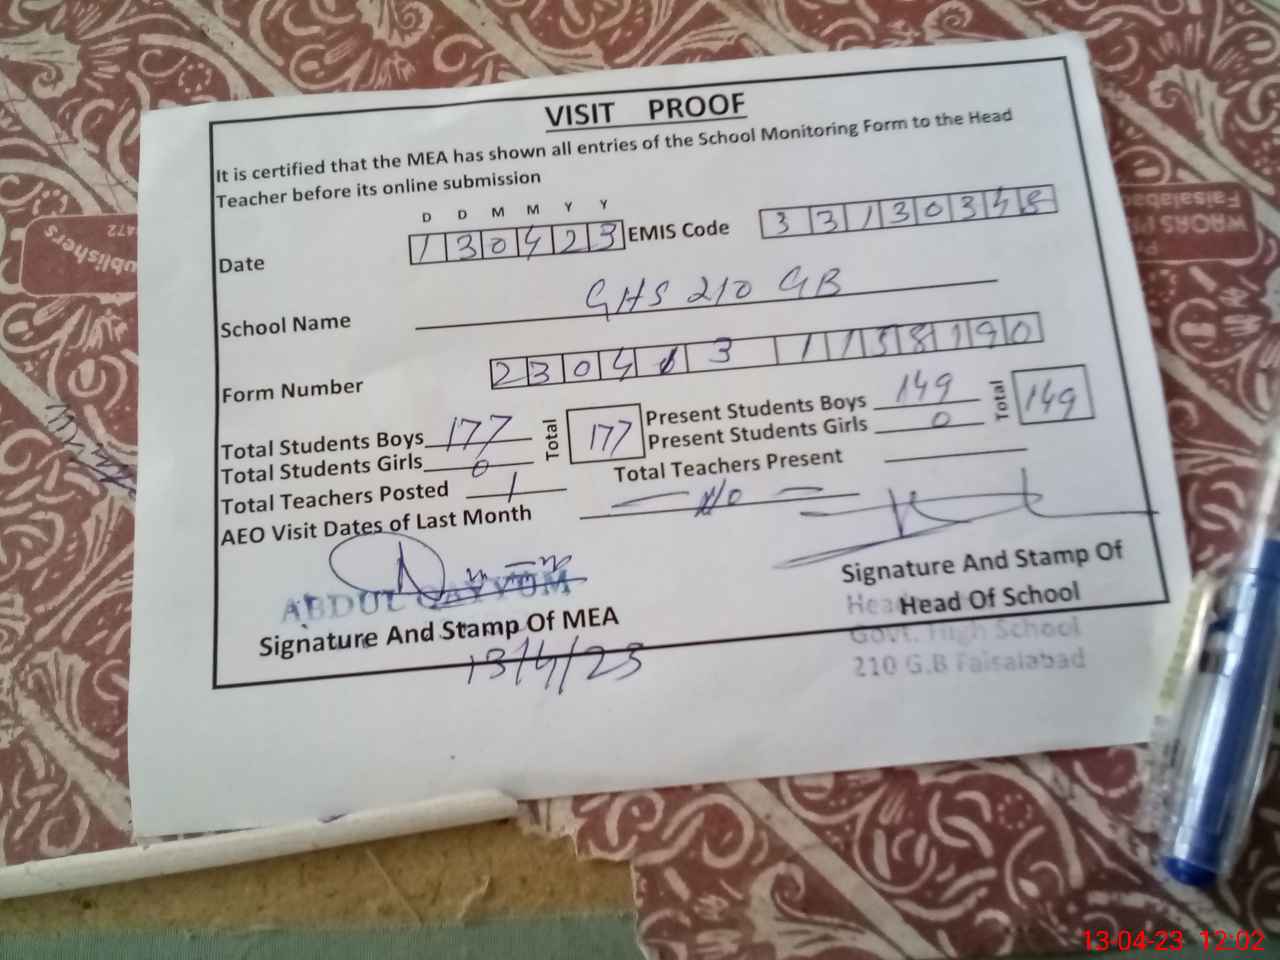 VISIT PROOF
It is certified that the MEA has shown all entries of the School Monitoring Form to the Head
Teacher before its online submission
D D M M Y Y
Date 130423 EMIS Code 33130348
School Name GHS 210 GB
Form Number
Total Students Boys 177 Total 177 Present Students Boys 149 Total 149
Total Students Girls 0 Present Students Girls 0
Total Teachers Posted 1 Total Teachers Present
AEO Visit Dates of Last Month No
ABDUL QAYYUM
Signature And Stamp Of MEA
13/4/23
Signature And Stamp Of
Head Of School
Govt. High School
210 G.B Faisalabad
ublishers
Faisalabad
13-04-23 12:02